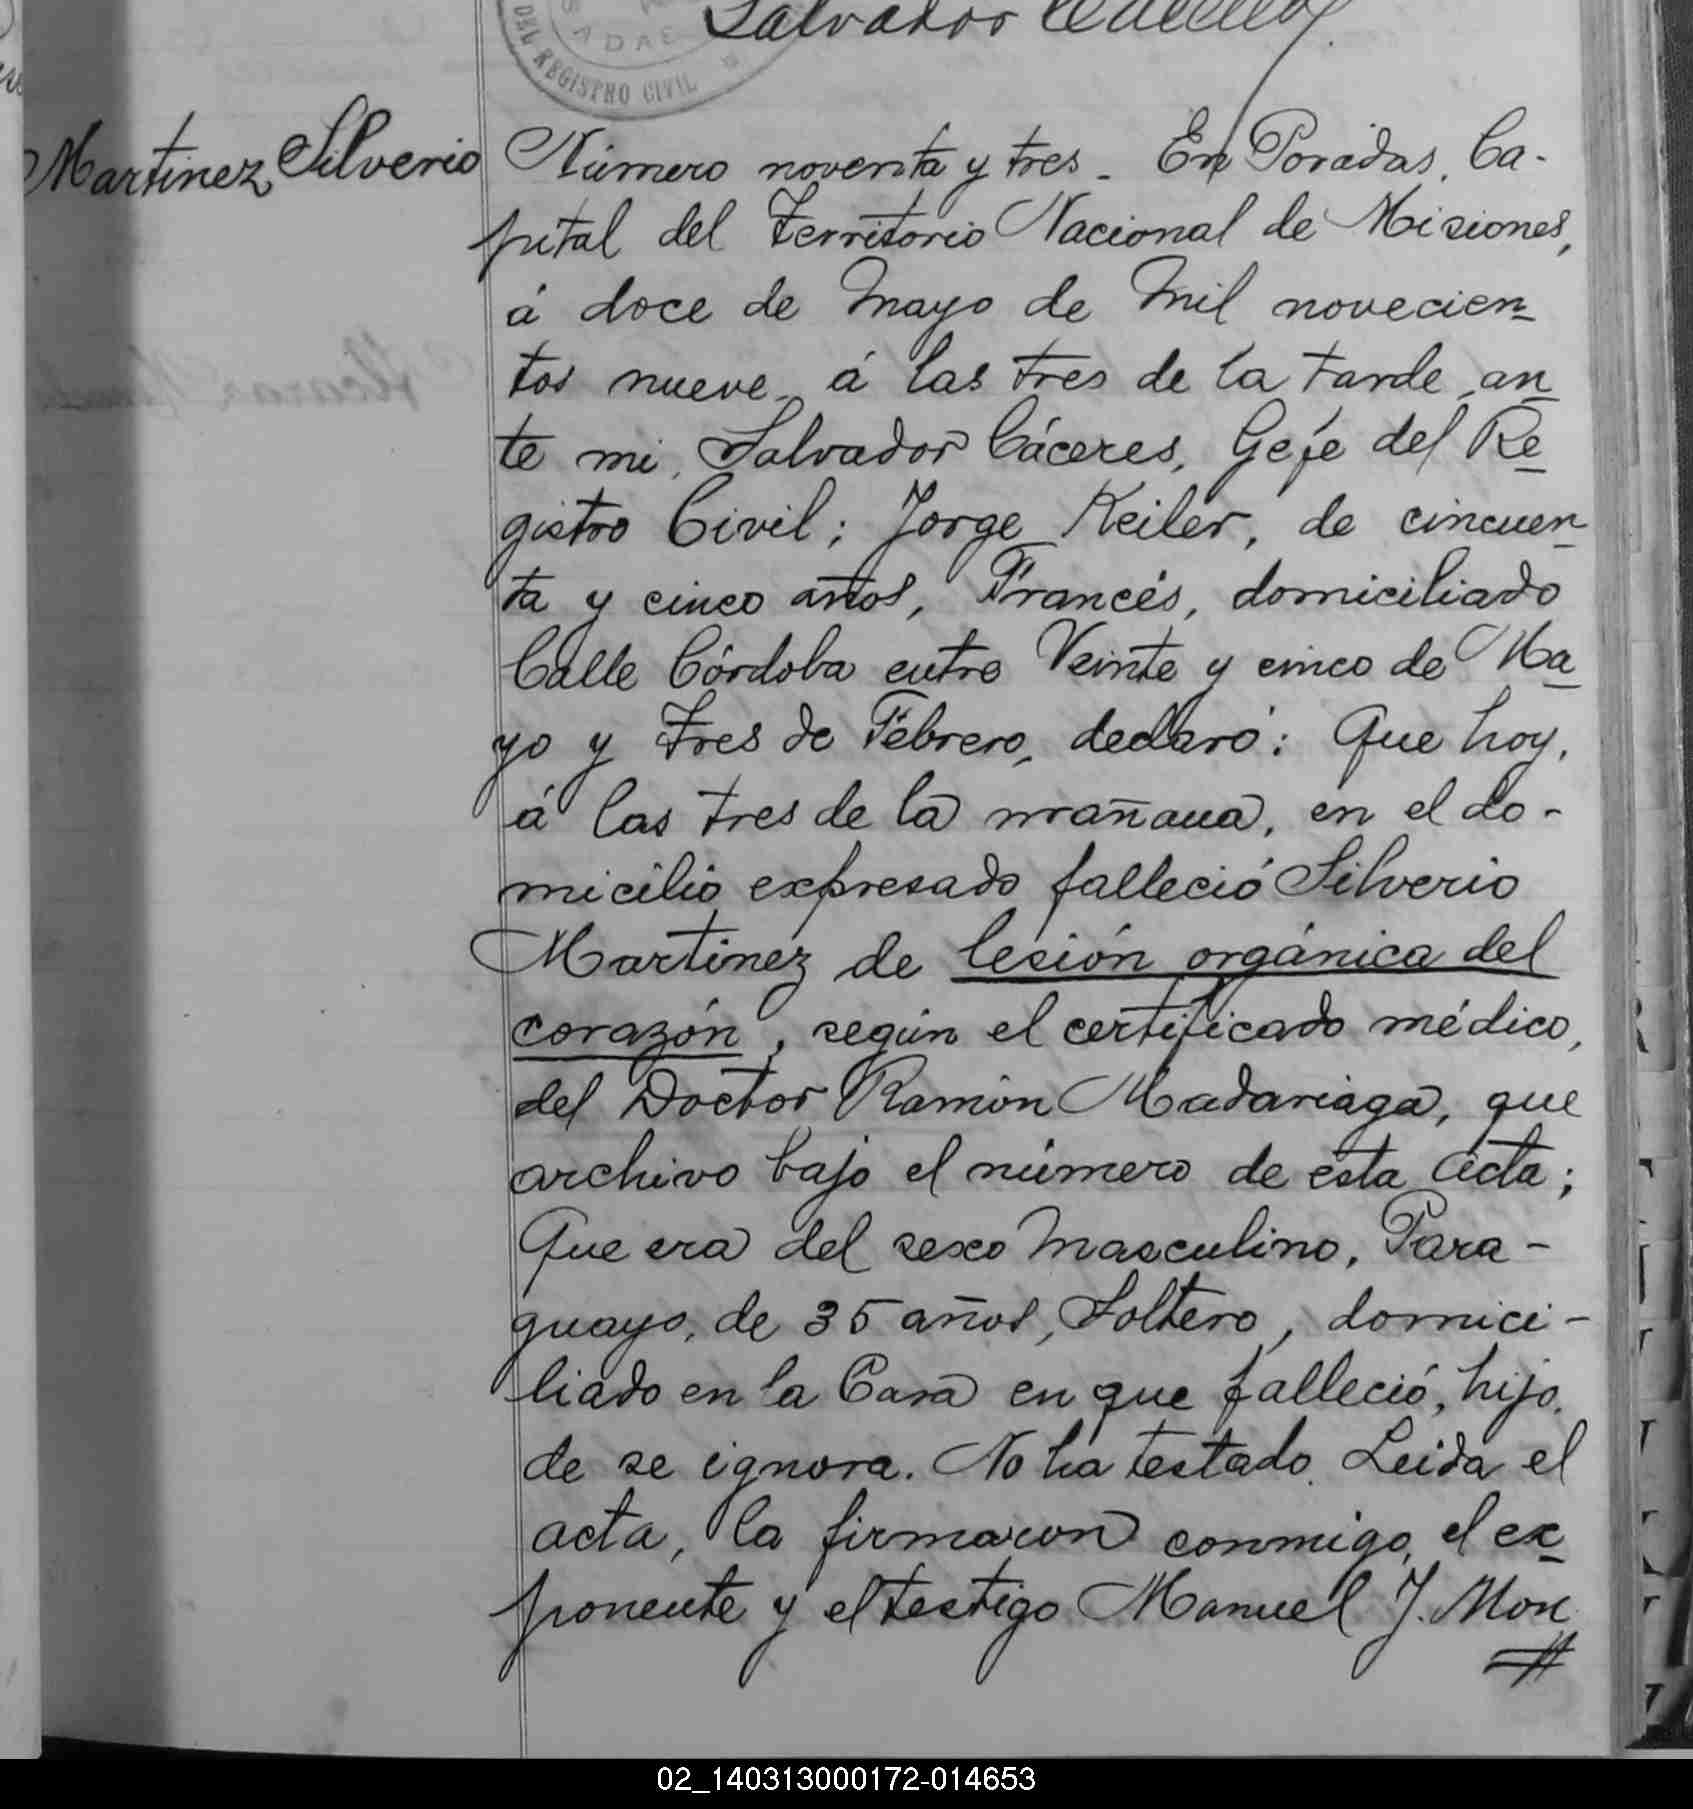 Salvador
DEL REGISTRO CIVIL
Martinez Silverio
Número noventa y tres - En Posadas, Ca-
pital del Territorio Nacional de Misiones,
á doce de Mayo de Mil novecien-
tos nueve, á las tres de la tarde, an-
te mi, Salvador Cáceres, Gefe del Re-
gistro Civil; Jorge Keiler, de cincuen-
ta y cinco años, Francés, domiciliado
Calle Córdoba entre Veinte y cinco de Ma-
yo y Tres de Febrero, declaró: Que hoy,
á las tres de la mañana, en el do-
micilio expresado falleció Silverio
Martinez de lesión orgánica del
corazón, según el certificado médico,
del Doctor Ramón Madariaga, que
archivo bajo el número de esta acta;
Que era del sexo Masculino, Para-
guayo, de 35 años, Soltero, domici-
liado en la Casa en que falleció, hijo,
de se ignora. No ha testado. Leida el
acta, la firmaron conmigo, el ex-
ponente y el testigo Manuel J. Mon
02_140313000172-014653